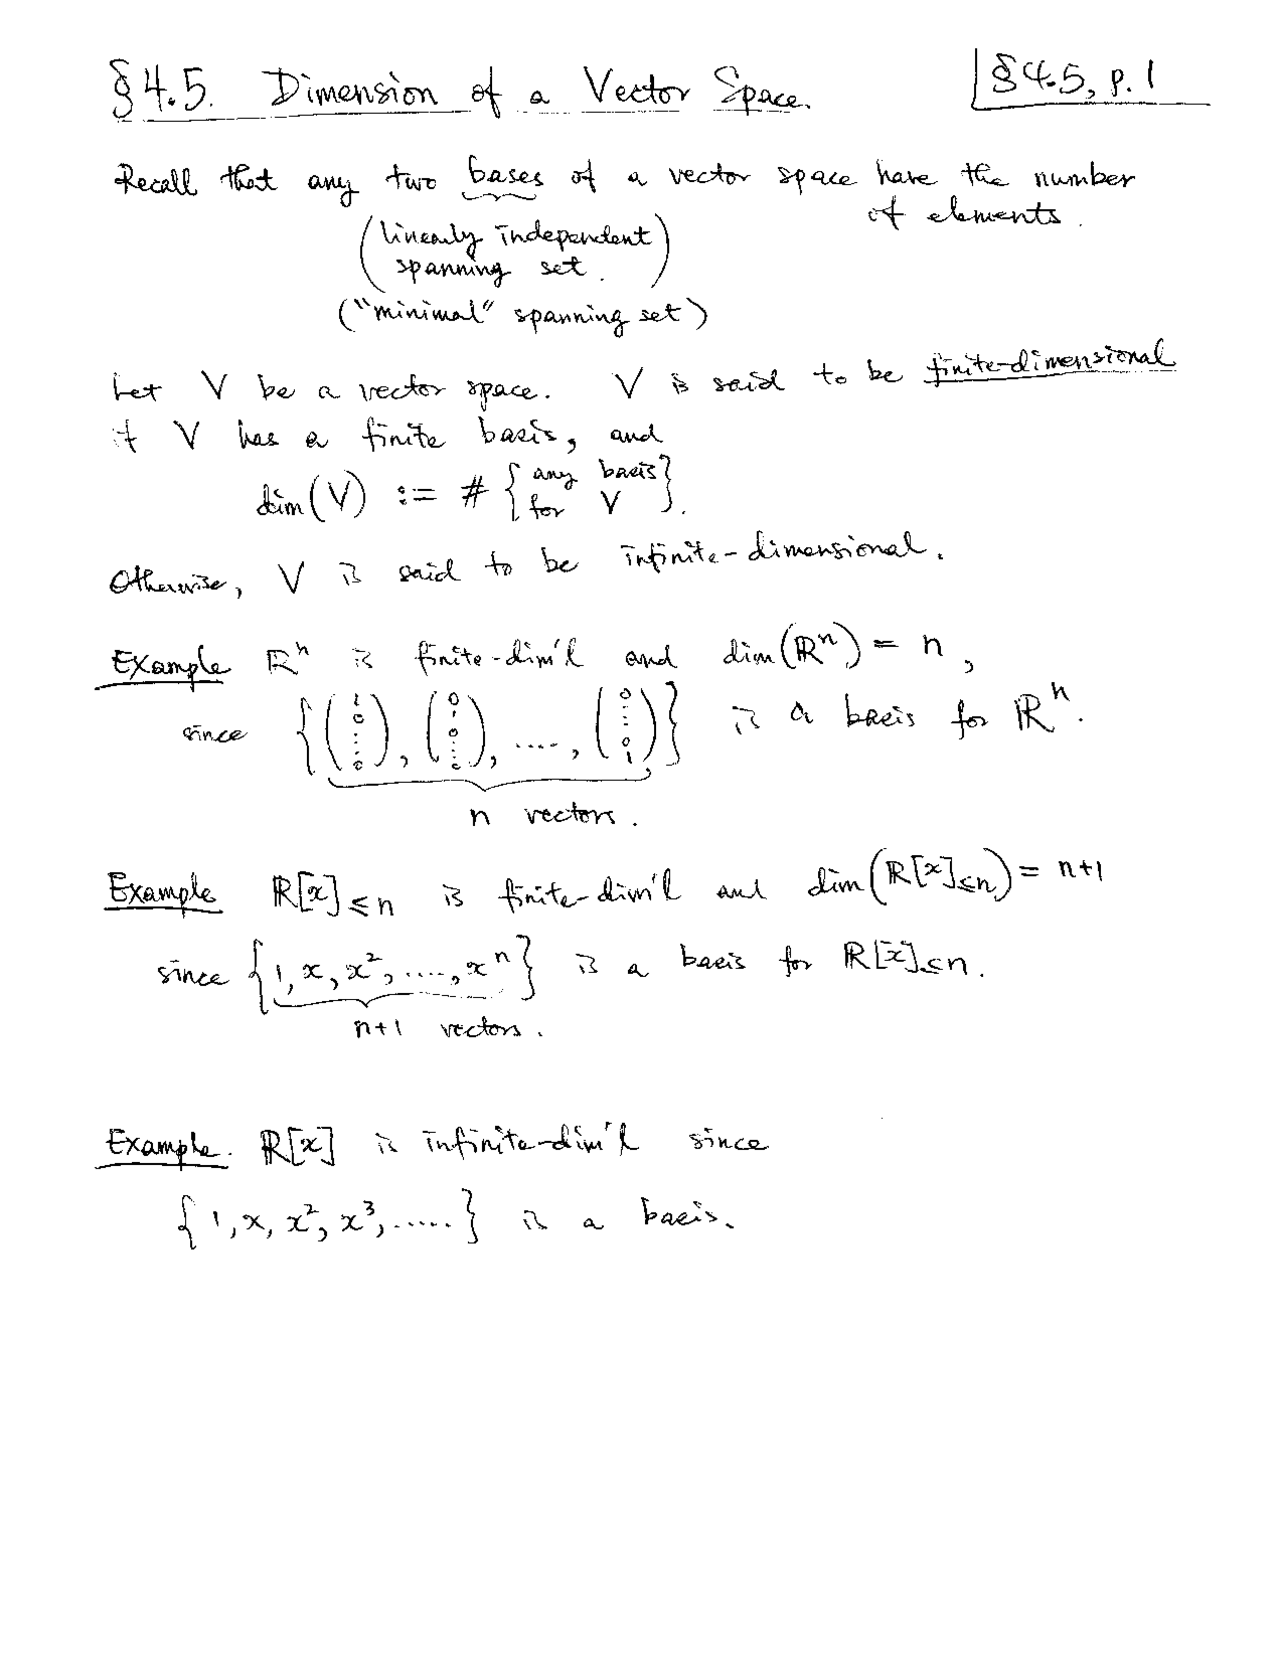 §4.5. Dimension of a Vector Space.
§4.5, p. 1
Recall that any two bases of a vector space have the number
of elements.
(linearly independent
spanning set.)
("minimal" spanning set)
Let V be a vector space. V is said to be finite-dimensional
if V has a finite basis, and
dim(V) := # { any basis
for V }.
Otherwise, V is said to be infinite-dimensional.
Example ℝⁿ is finite-dim'l and dim(ℝⁿ) = n,
since {(1 0 ⋮ 0), (0 1 0 ⋮ 0), ...., (0 ⋮ 0 1)} is a basis for ℝⁿ.
n vectors.
Example ℝ[x]≤n is finite-dim'l and dim(ℝ[x]≤n) = n+1
since {1, x, x², ...., xⁿ} is a basis for ℝ[x]≤n.
n+1 vectors.
Example. ℝ[x] is infinite-dim'l since
{1, x, x², x³, .....} is a basis.